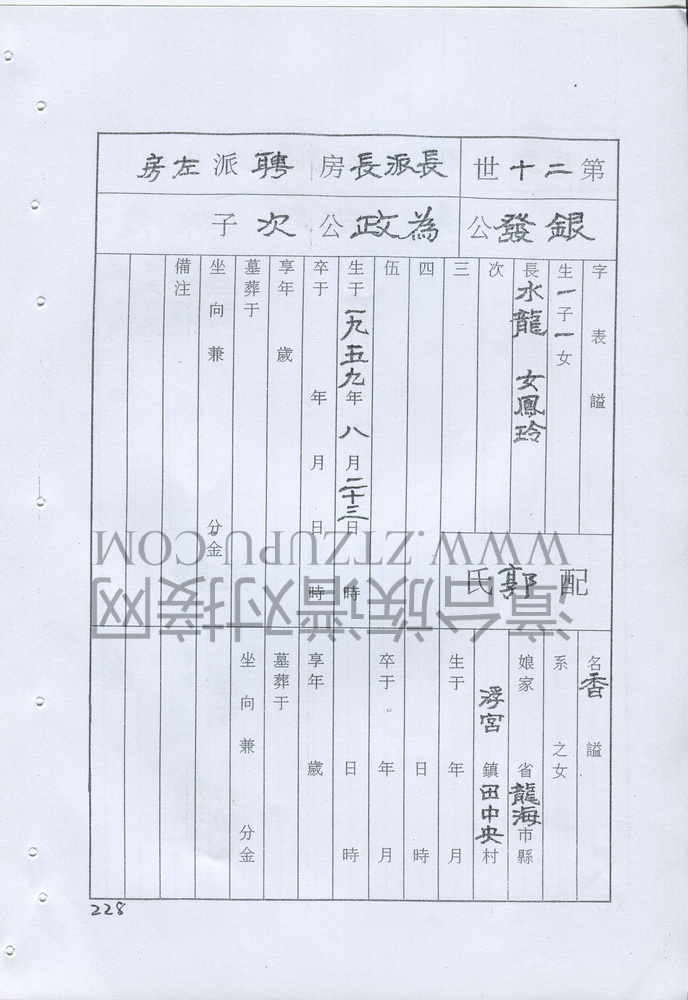 第二十世
長派長房聘派左房
銀發公
為政公次子
字表謚
生一子一女
長水龍 女鳳玲
次
三
四
伍
生于一九五九年八月二十三日時
卒于年月日時
享年歲
墓葬于
坐向兼分金
備注
配郭氏
名香謚
系之女
娘家省龍海市縣
浮宮鎮田中央村
生于年月
日時
卒于年月
日時
享年歲
墓葬于
坐向兼分金
228
WWW.ZTZUPU.COM
漳台族谱对接网